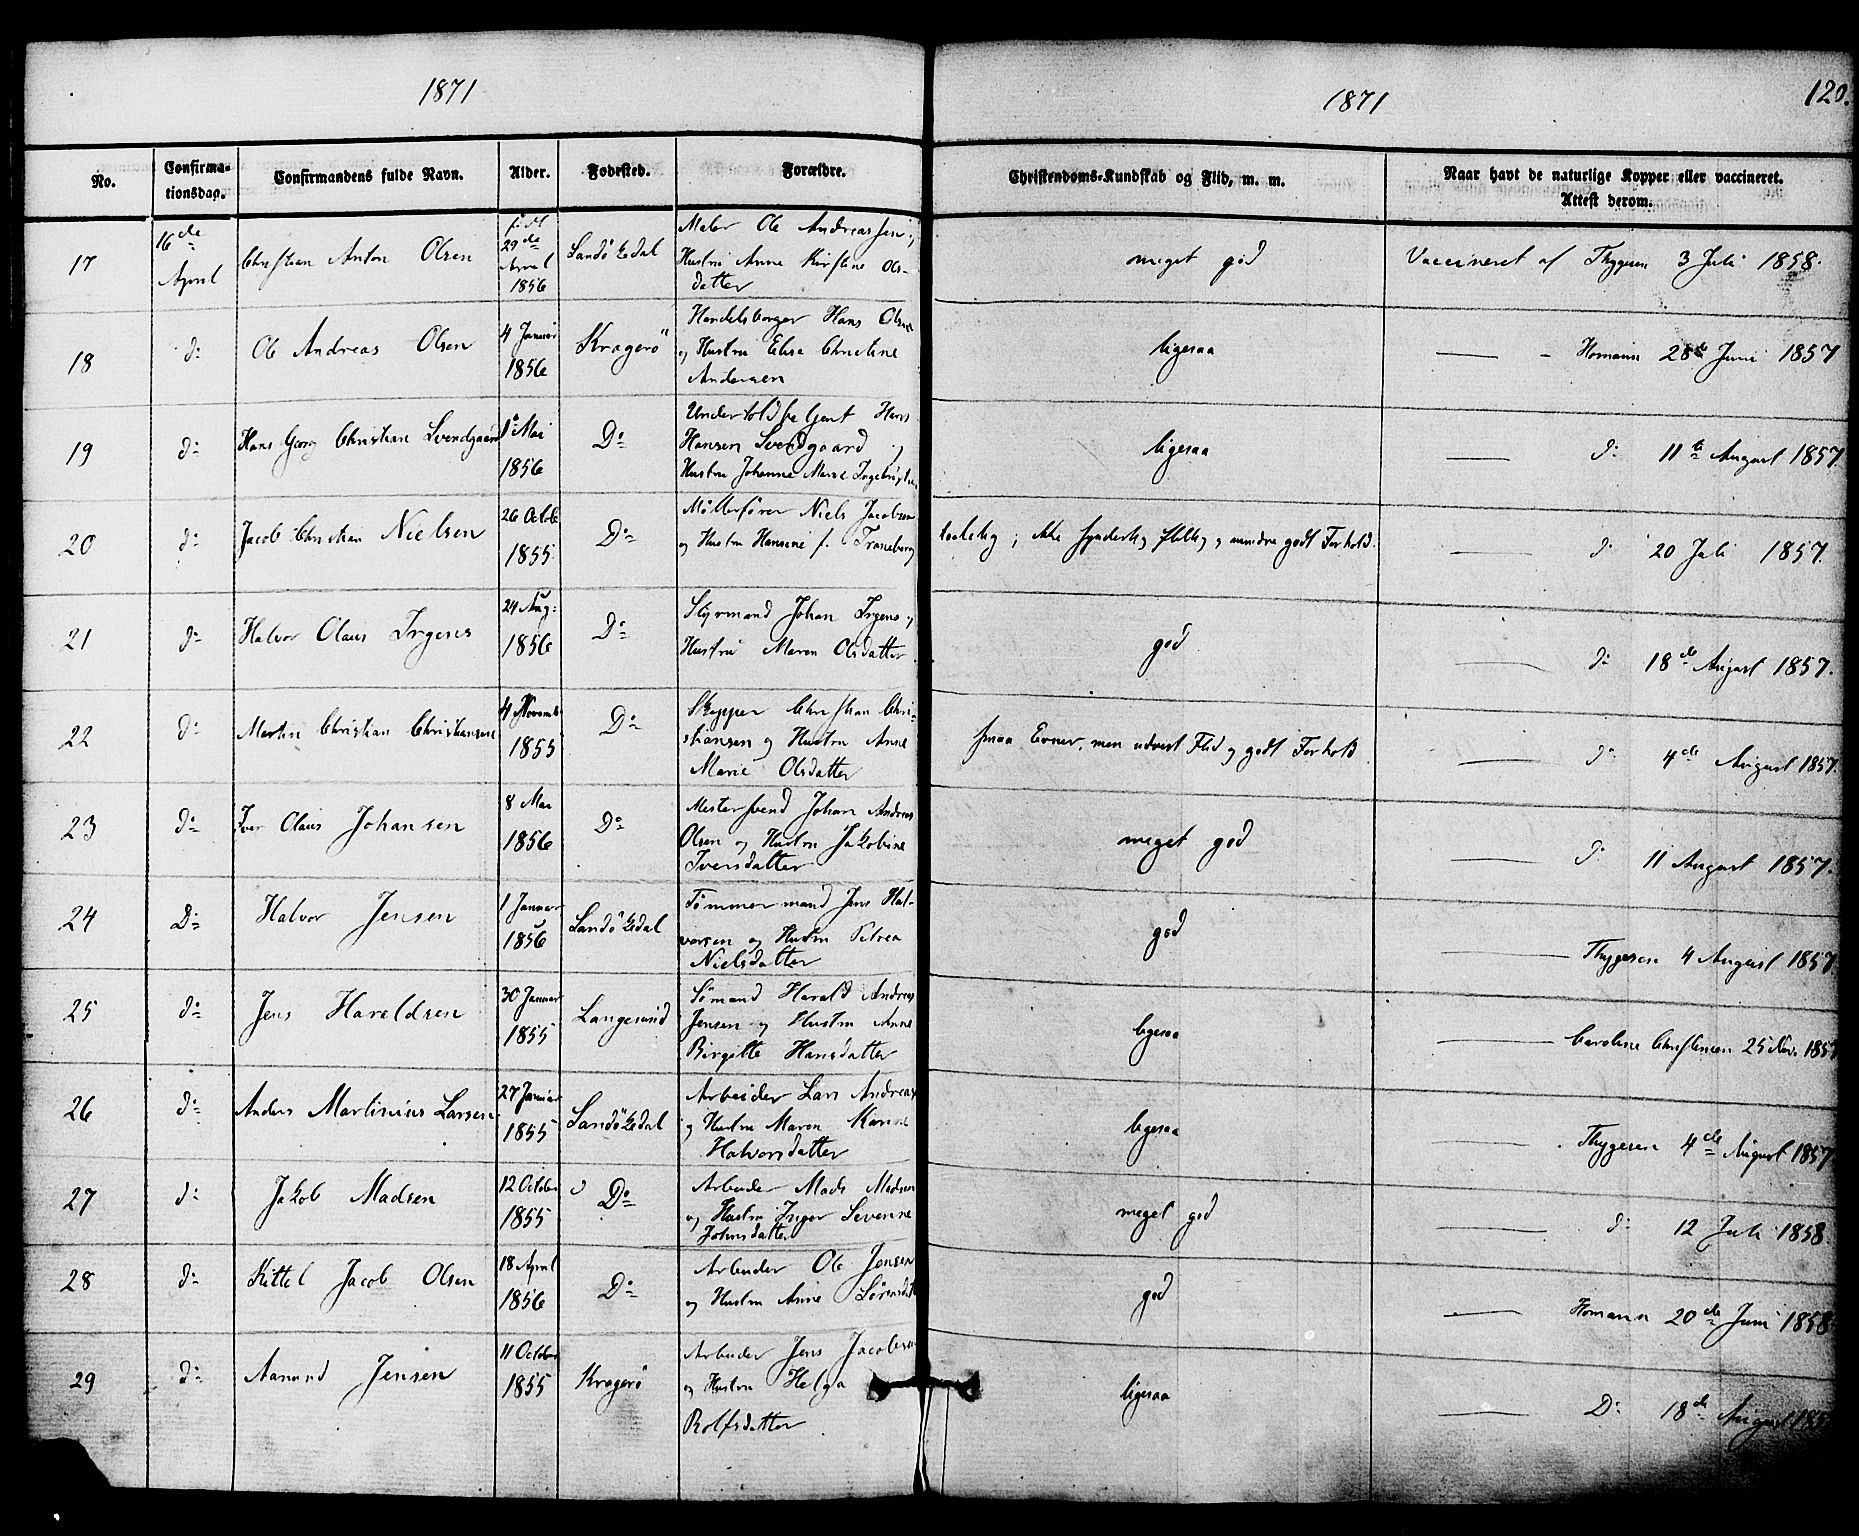 1871
1871
120.
No.
Confirma-
tionsdag.
Confirmandens fulde Navn.
Alder.
Fodested.
Forældre.
Christendoms-Kundskab og Flid, m. m.
Naar havt de naturlige Kopper eller vaccineret.
Attest derom.
17
16de
April
Christian Anton Olsen
født
29de
April
1856
Sandökedal
Maler Ole Andreassen og
Hustru Anne Kirstine Ols-
datter
meget god
Vaccineret af Thygesen 3 Juli 1858.
18
d:
Ole Andreas Olsen
4 Januar
1856
Kragerö
Handelsborger Hans Olsen
og Hustru Elise Christine
Andersen
ligesaa
Homann 28de Juni 1857
19
d:
Hans Georg Christian Svendgaard
1 Mai
1856
Do
Hans
Hansen Svendgaard og
Hustru Johanne Marie
ligesaa
d: 11te August 1857.
20
d:
Jacob Christian Nielsen
26 Octob
1855
Do
Møllerfører Niels Jacobsen
og Hustru Hansine f. Traneborg
; ikke synderlig flittig; godt Forhold.
d: 20 Juli 1857.
21
d:
Halvor Olaus Irgens
24 Aug:
1856
Do
Styrmand Johan Irgens og
Hustru Maren Olsdatter
god
d: 18de August 1857.
22
d:
Martin Christian Christiansen
4 Novemb
1855
Do
Skipper Christian Chri-
stiansen og Hustru Anne
Marie Olsdatter
smaa Evner, men udvist Flid og godt Forhold
d: 4de August 1857.
23
d:
Iver Olaus Johansen
8 Mai
1856
Do
Mestersvend Johan Andreas
Olsen og Hustru Jakobine
Iversdatter
meget god
d: 11 August 1857.
24
D:
Halvor Jensen
1 Januar
1856
Sandökedal
Tömmermand Jens Hal-
vorsen og Hustru Petrea
Nielsdatter
god
Thygesen 4 August 1857
25
d:
Jens Haraldsen
30 Januar
1855
Langesund
Sömand Harald Andreas
Jensen og Hustru Anne
Birgitte Hansdatter
ligesaa
Caroline Christensen 25 Nov. 185
26
d:
Anders Martinius Larsen
27 Januar
1855
Sandökedal
Arbeider Lars Andreas
og Hustru Maren Karine
Halvorsdatter
ligesaa
Thygesen 4de August 1857
27
d:
Jakob Madsen
12 October
1855
Do
Arbeider Mads Madsen
og Hustru Inger Severine
Johnsdatter
meget god
d: 12 Juli 1858.
28
d:
Kittel Jacob Olsen
18 April
1856
Do
Arbeider Ole Jensen
og Hustru Anne Sörensdt
god
Homann 20de Juni 1858
29
d:
Aanund Jensen
11 October
1855
Kragerö
Arbeider Jens Jacobsen
og Hustru Helga
Rolfsdatter
ligesaa
D: 18de August 185